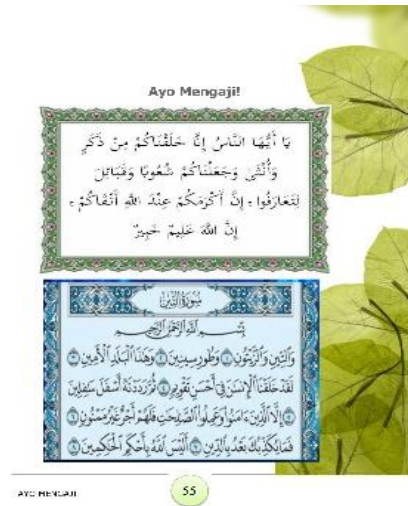 Ayo Mengaji!
يَا أَيُّهَا النَّاسُ إِنَّا خَلَقْنَاكُمْ مِنْ ذَكَرٍ
وَأُنْثَىٰ وَجَعَلْنَاكُمْ شُعُوبًا وَقَبَائِلَ
لِتَعَارَفُوا ۚ إِنَّ أَكْرَمَكُمْ عِنْدَ اللَّهِ أَتْقَاكُمْ ۚ
إِنَّ اللَّهَ عَلِيمٌ خَبِيرٌ
سُورَةُ التِّينِ
بِسْمِ اللَّهِ الرَّحْمَٰنِ الرَّحِيمِ
وَالتِّينِ وَالزَّيْتُونِ ۝١ وَطُورِ سِينِينَ ۝٢ وَهَٰذَا الْبَلَدِ الْأَمِينِ ۝٣
لَقَدْ خَلَقْنَا الْإِنسَٰنَ فِي أَحْسَنِ تَقْوِيمٍ ۝٤ ثُمَّ رَدَدْنَٰهُ أَسْفَلَ سَٰفِلِينَ
۝٥ إِلَّا الَّذِينَ ءَامَنُوا وَعَمِلُوا الصَّٰلِحَٰتِ فَلَهُمْ أَجْرٌ غَيْرُ مَمْنُونٍ ۝٦
فَمَا يُكَذِّبُكَ بَعْدُ بِالدِّينِ ۝٧ أَلَيْسَ اللَّهُ بِأَحْكَمِ الْحَٰكِمِينَ ۝٨
AYO MENGAJI
55